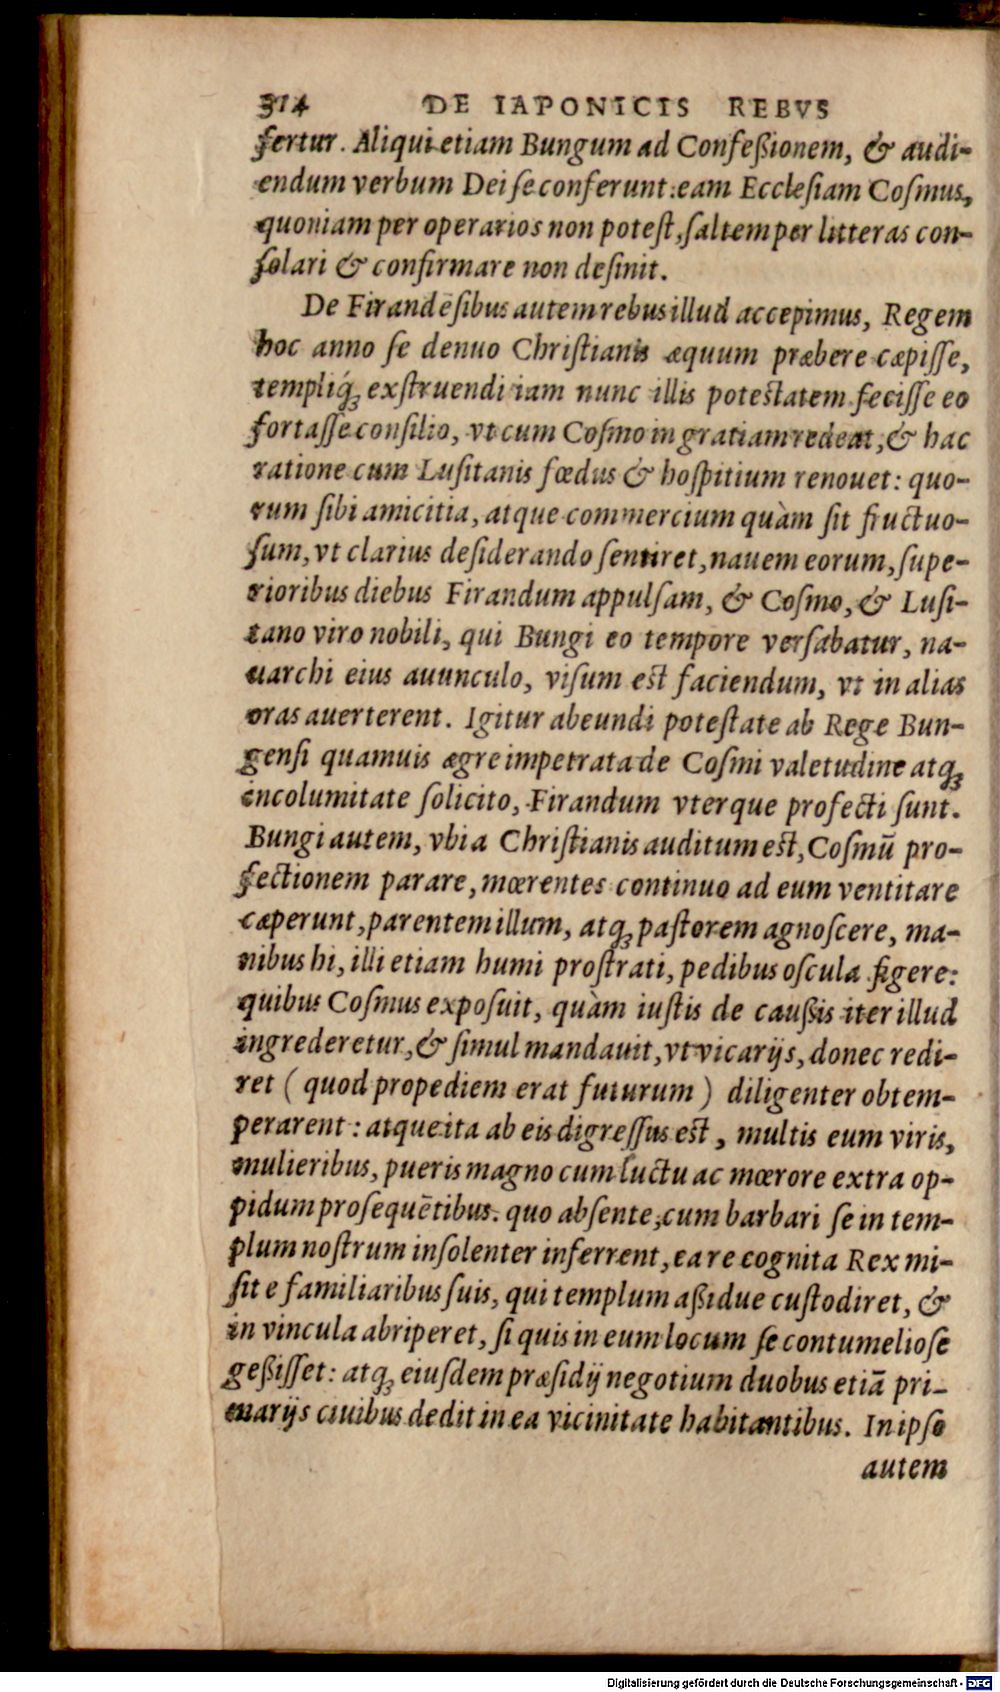 314 DE IAPONICIS REBVS
fertur. Aliqui etiam Bungum ad Confeßionem, & audi-
endum verbum Dei se conferunt: eam Ecclesiam Cosmus,
quoniam per operarios non potest, saltem per litteras con-
solari & confirmare non desinit.
De Firandēsibus autem rebus illud accepimus, Regem
hoc anno se denuo Christianis æquum præbere cæpisse,
templiq́ꝫ exstruendi iam nunc illis potestatem fecisse eo
fortasse consilio, vt cum Cosmo in gratiam redeat, & hac
ratione cum Lusitanis fœdus & hospitium renouet: quo-
rum sibi amicitia, atque commercium quàm sit fructuo-
sum, vt clarius desiderando sentiret, nauem eorum, supe-
rioribus diebus Firandum appulsam, & Cosmo, & Lusi-
tano viro nobili, qui Bungi eo tempore versabatur, na-
uarchi eius auunculo, visum est faciendum, vt in alias
oras auerterent. Igitur abeundi potestate ab Rege Bun-
gensi quamuis ægre impetrata de Cosmi valetudine atqꝫ
incolumitate solicito, Firandum vterque profecti sunt.
Bungi autem, vbi a Christianis auditum est, Cosmū pro-
fectionem parare, mœrentes continuo ad eum ventitare
cæperunt, parentem illum, atqꝫ pastorem agnoscere, ma-
nibus hi, illi etiam humi prostrati, pedibus oscula figere:
quibus Cosmus exposuit, quàm iustis de caußis iter illud
ingrederetur, & simul mandauit, vt vicarijs, donec redi-
ret (quod propediem erat futurum) diligenter obtem-
perarent: atque ita ab eis digressus est, multis eum viris,
mulieribus, pueris magno cum luctu ac mœrore extra op-
pidum prosequētibus. quo absente, cum barbari se in tem-
plum nostrum insolenter inferrent, ea re cognita Rex mi-
sit e familiaribus suis, qui templum aßidue custodiret, &
in vincula abriperet, si quis in eum locum se contumeliose
geßisset: atqꝫ eiusdem præsidij negotium duobus etiā pri-
marijs ciuibus dedit in ea vicinitate habitantibus. In ipso
autem
Digitalisierung gefördert durch die Deutsche Forschungsgemeinschaft - DFG